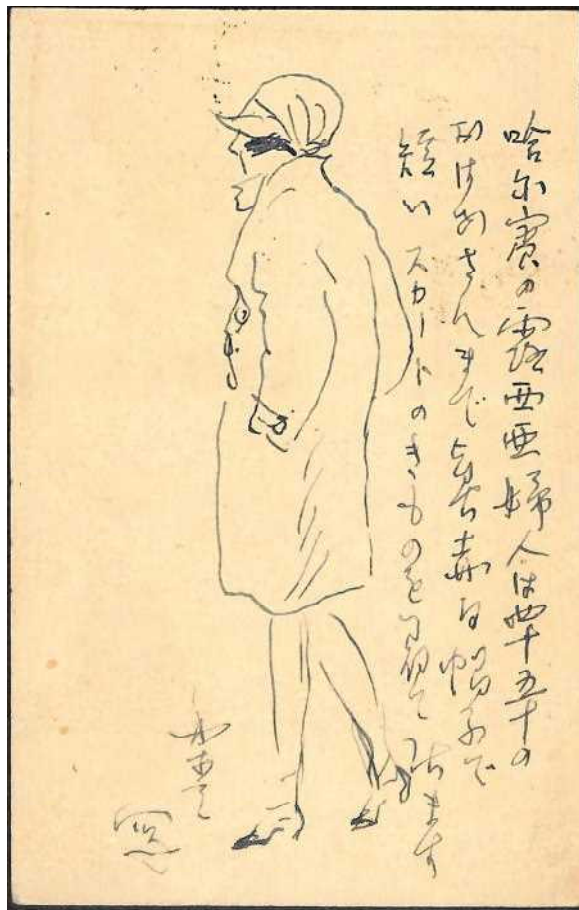 哈尔賓の露西亜婦人は四十五十の
おばあさんまで真赤な帽子で
短い スカートのきものを着て 居ます